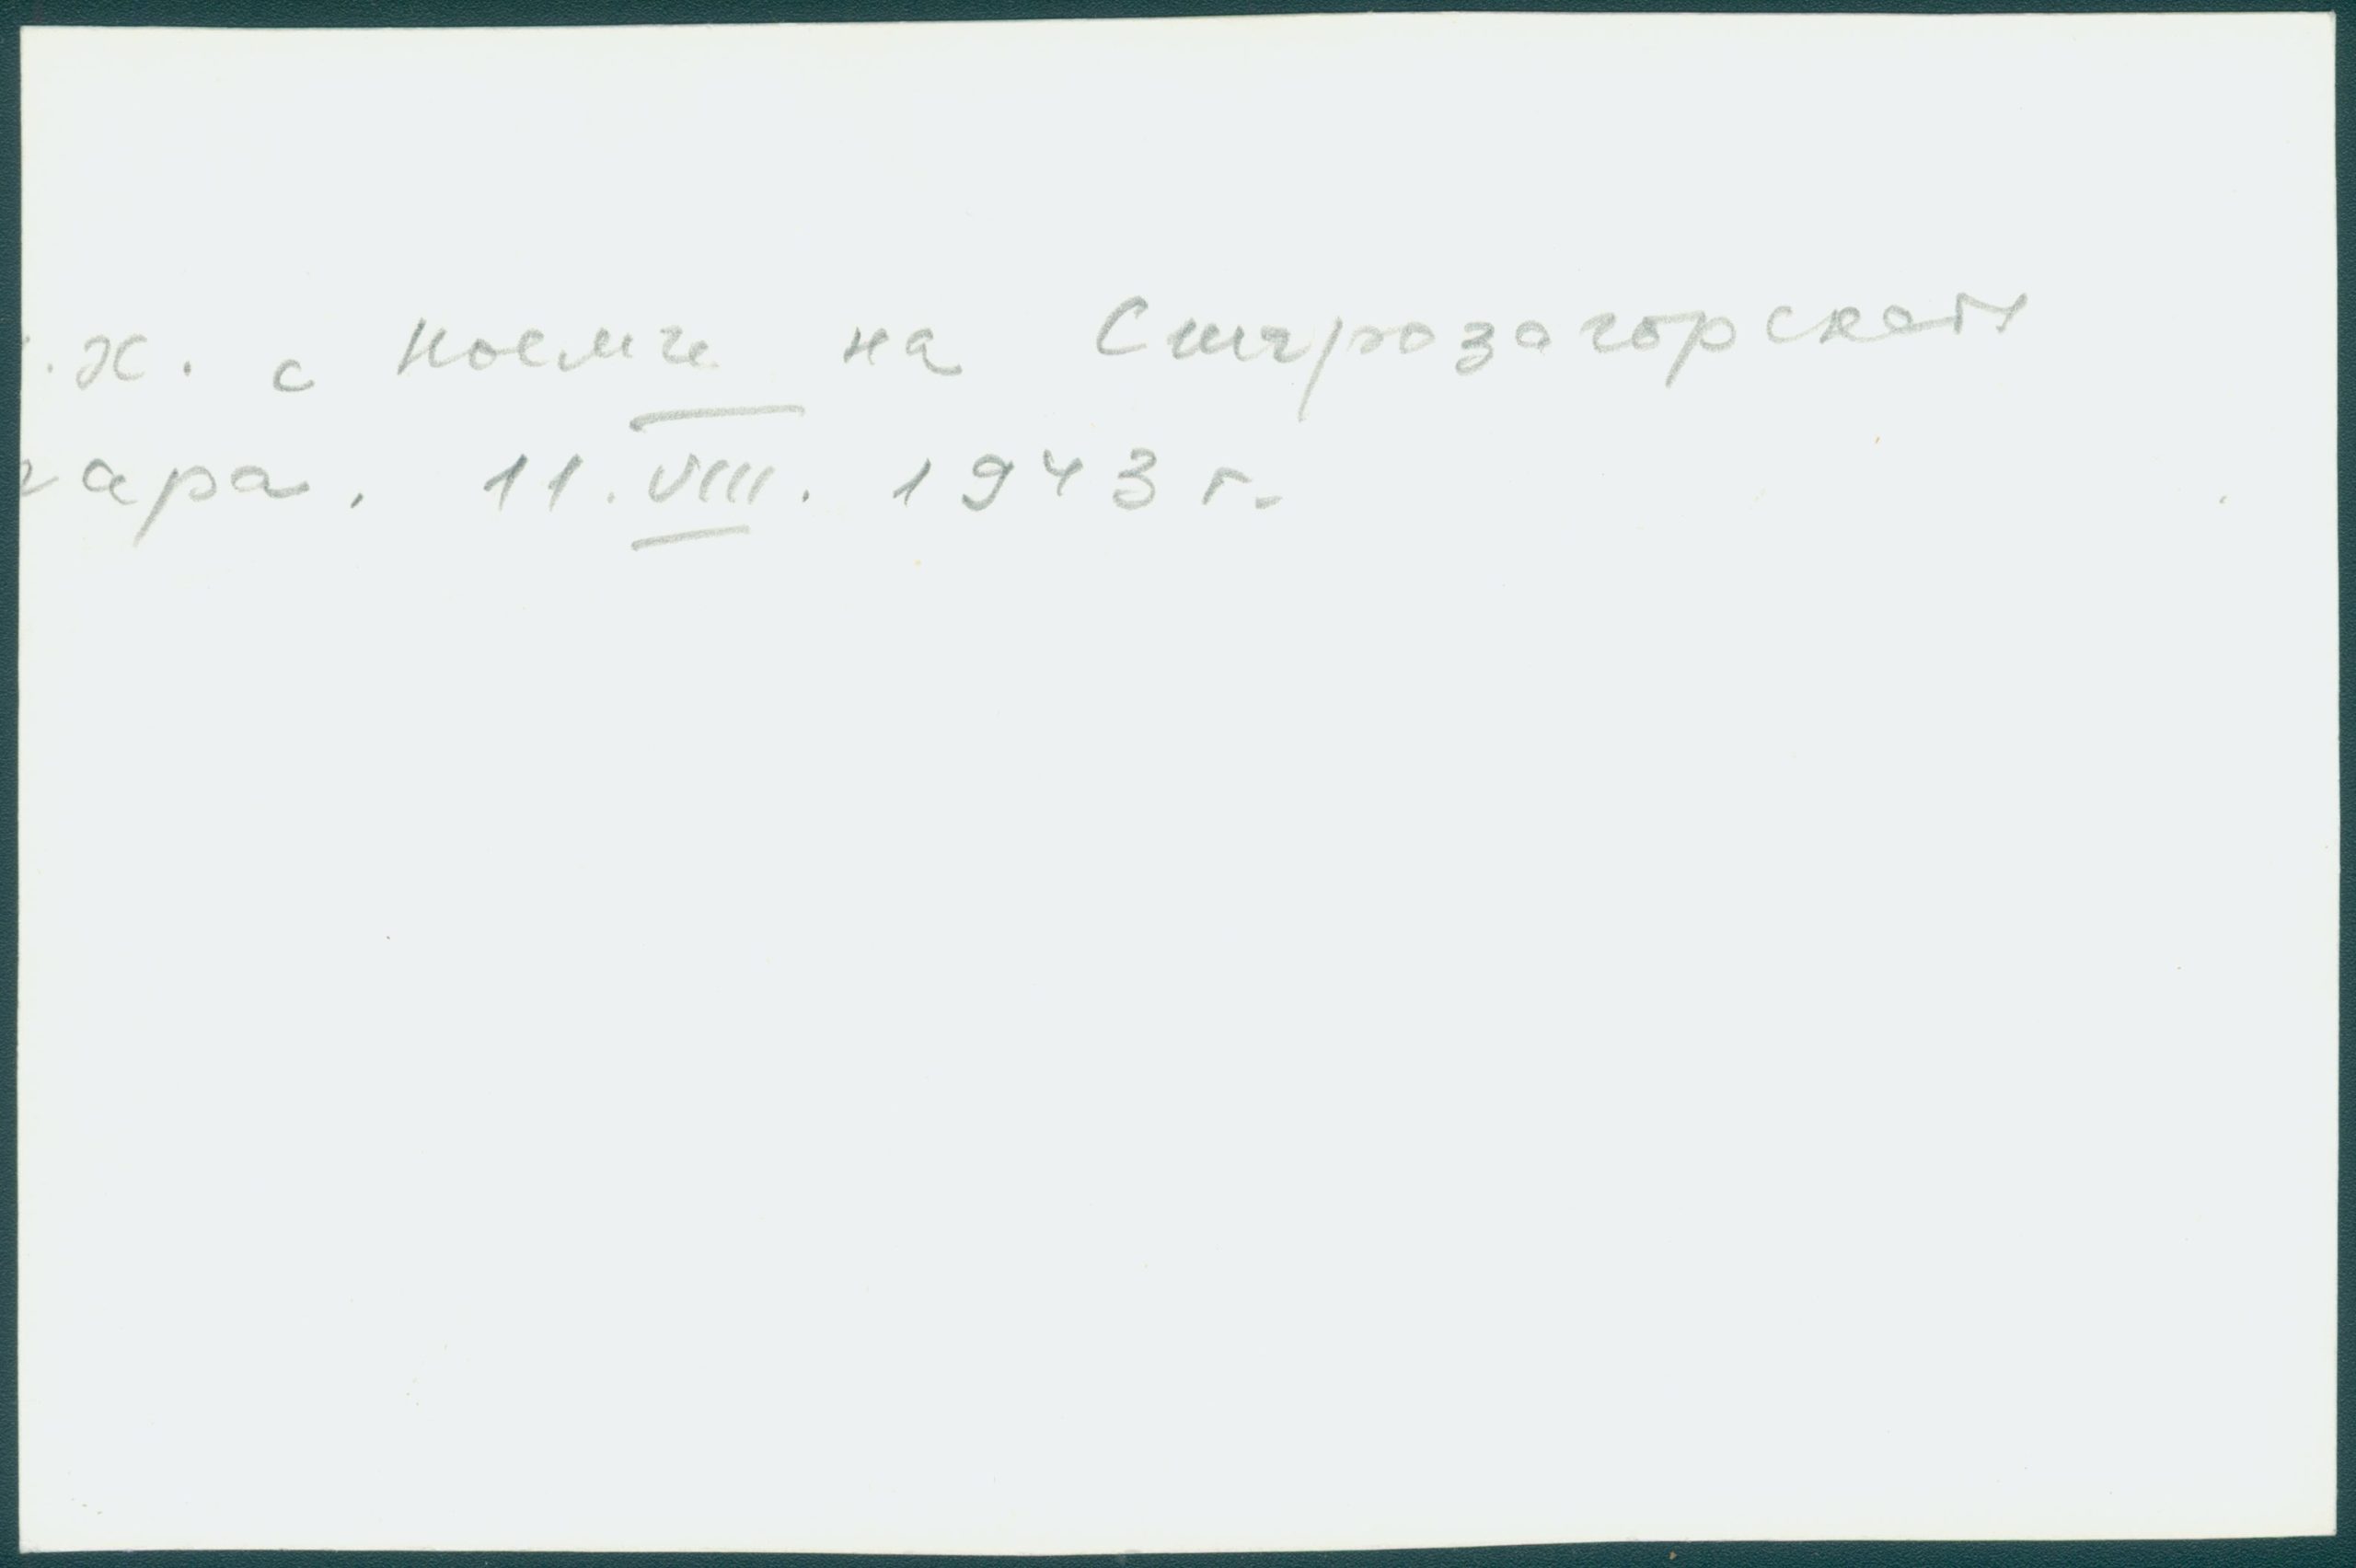 .Ж. с Ноемги на Старозагорската
гара. 11.VIII. 1943 г.